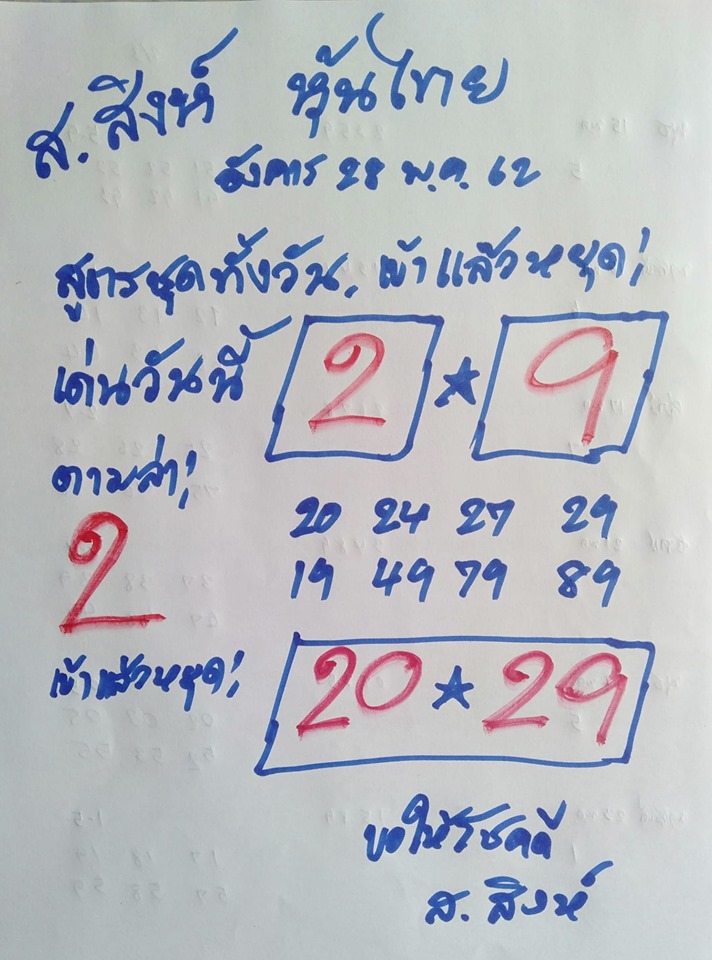 ส. สิงห์ หุ้นไทย
อังคาร 28 พ.ค. 62
สูตรชุดทั้งวัน, เข้าแล้วหยุด!
เด่นวันนี้ 2 ★ 9
ตามล่า!
2
20 24 27 29
19 49 79 89
เข้าแล้วหยุด!
20 ★ 29
ขอให้โชคดี
ส. สิงห์